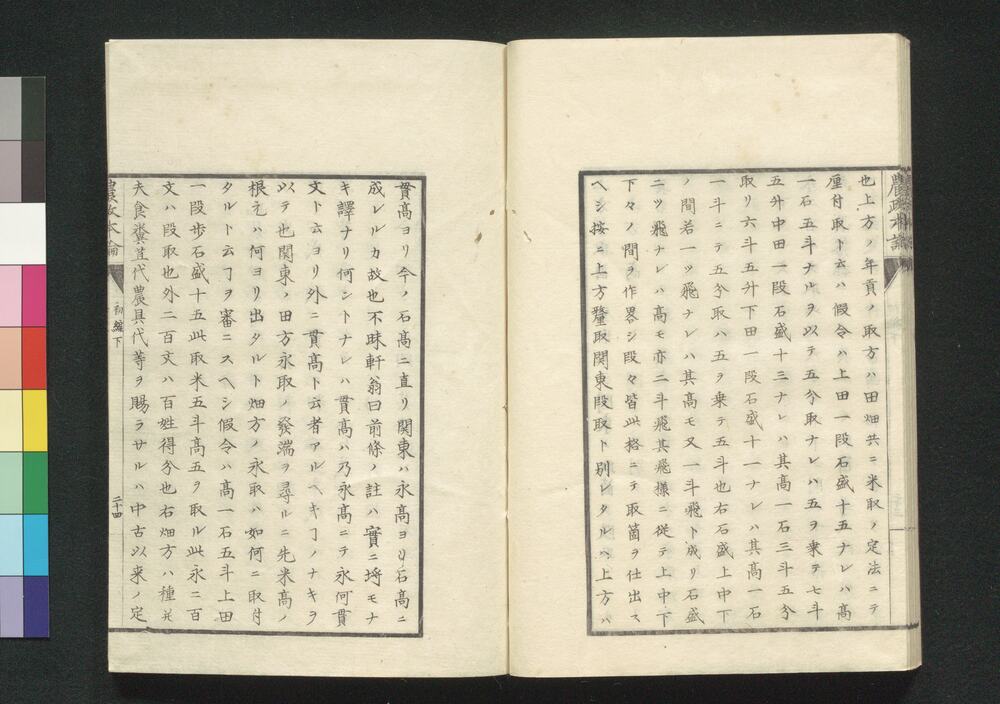 農政本論
也上方ノ年貢ノ取方ハ田畑共ニ米取ノ定法ニテ
厘付取ト云ハ假令ハ上田一段石盛十五ナレハ高
一石五斗ナルヲ以テ五分取ナレハ五ヲ乗テ七斗
五升中田一段石盛十三ナレハ其高一石三斗五分
取リ六斗五升下田一段石盛十一ナレハ其高一石
一斗ニテ五分取ハ五ヲ乗テ五斗也右石盛上中下
ノ間若一ツ飛ナレハ其高モ又一斗飛ト成リ石盛
二ツ飛ナレハ高モ亦二斗飛其飛様ニ従テ上中下
下々ノ間ヲ作畧シ段々皆此格ニテ取箇ヲ仕出ス
ヘシ按ニ上方釐取関東段取ト別レタルハ上方ハ
貫高ヨリ今ノ石高ニ直リ関東ハ永高ヨリ石高ニ
成レルカ故也不昧軒翁曰前條ノ註ハ實ニ埒モナ
キ譯ナリ何ントナレハ貫高ハ乃永高ニテ永何貫
文ト云ヨリ外ニ貫高ト云者アルヘキヿノナキヲ
以テ也関東ノ田方永取ノ發端ヲ尋ルニ先米高ノ
根元ハ何ヨリ出タルト畑方ノ永取ハ如何ニ取付
タルト云ヿヲ審ニスヘシ假令ハ高一石五斗上田
一段歩石盛十五此取米五斗高五ヲ取ル此永二百
文ハ段取也外二百文ハ百姓得分也右畑方ハ種并
夫食糞苴代農具代等ヲ賜ラサルハ中古以来ノ定
農政本論
初編下
二十四